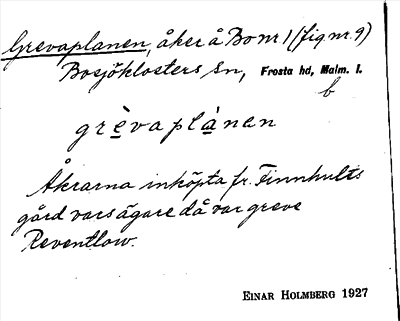 Grevaplanen, åker å Bo nr 1 (fig nr 9)
Bosjöklosters sn, Frosta hd, Malm. l.
b
grèvaplànan
Åkrarna inköpta fr. Finnhults
gård vars ägare då var greve
Reventlow.
EINAR HOLMBERG 1927